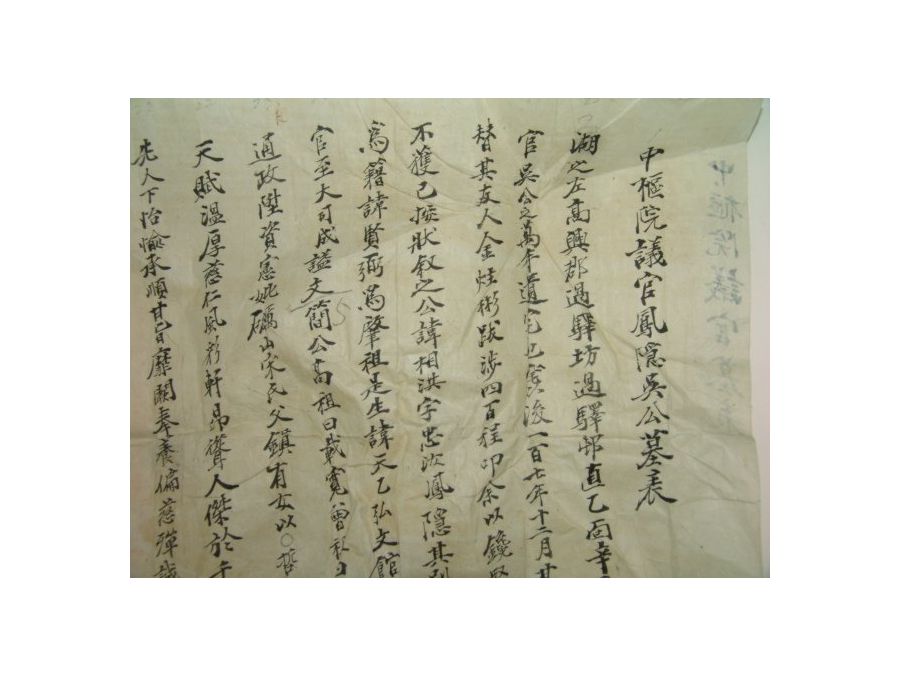 中樞院議官鳳隱吳公墓表
湖之左高興郡過驛坊過驛邨直乙面辛
官吳公之萬年遺宅也窆後一百七年十二月廿
替其友人金炷彬跋涉四百程叩余以鑱
不獲已按狀叙之公諱相淇字忠汝鳳隱其
爲籍諱賢弼爲肇祖是生諱天乙弘文館
官至大司成謚文簡公高祖曰載寬曾祖曰
通政陞資憲妣礪山宋氏父鎭有女以○哲
天賦溫厚慈仁風彩軒昂聳人傑於
先人下怡愉承順甘旨靡闕奉養偏慈殫
中樞院議官